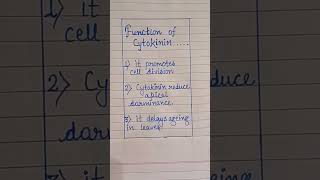 Function of
Cytokinin.....
1) It promotes
cell division
2) Cytokinin reduce
apical
darminance.
3) It delays ageing
in leaves